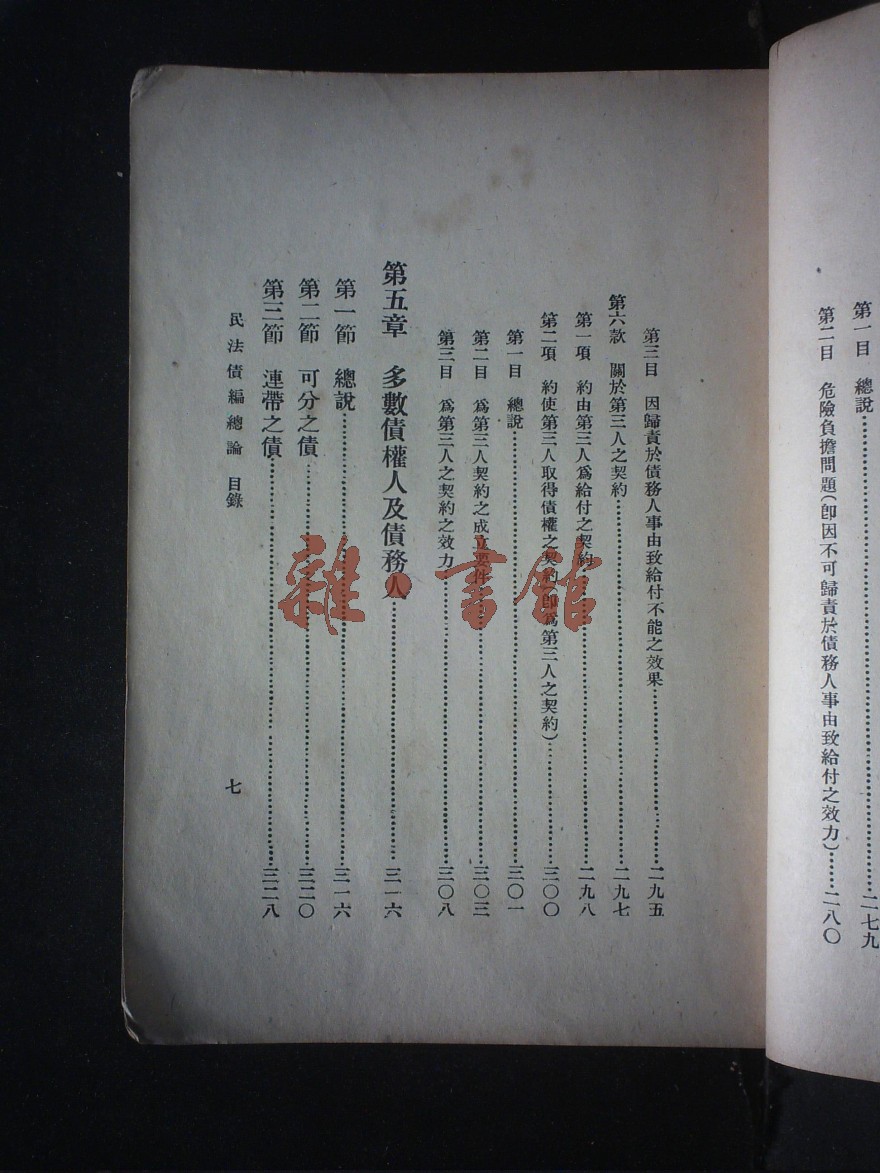 第一目　總說……二七九
第二目　危險負擔問題(卽因不可歸責於債務人事由致給付之效力)……二八〇
第三目　因歸責於債務人事由致給付不能之效果……二九五
第六款　關於第三人之契約……二九七
第一項　約由第三人爲給付之契約……二九八
第二項　約使第三人取得債權之契約(卽爲第三人之契約)……三〇〇
第一目　總說……三〇一
第二目　爲第三人契約之成立要件……三〇三
第三目　爲第三人之契約之效力……三〇八
第五章　多數債權人及債務人……三一六
第一節　總說……三一六
第二節　可分之債……三二〇
第三節　連帶之債……三二八
民法債編總論　目錄
七
雜·書館